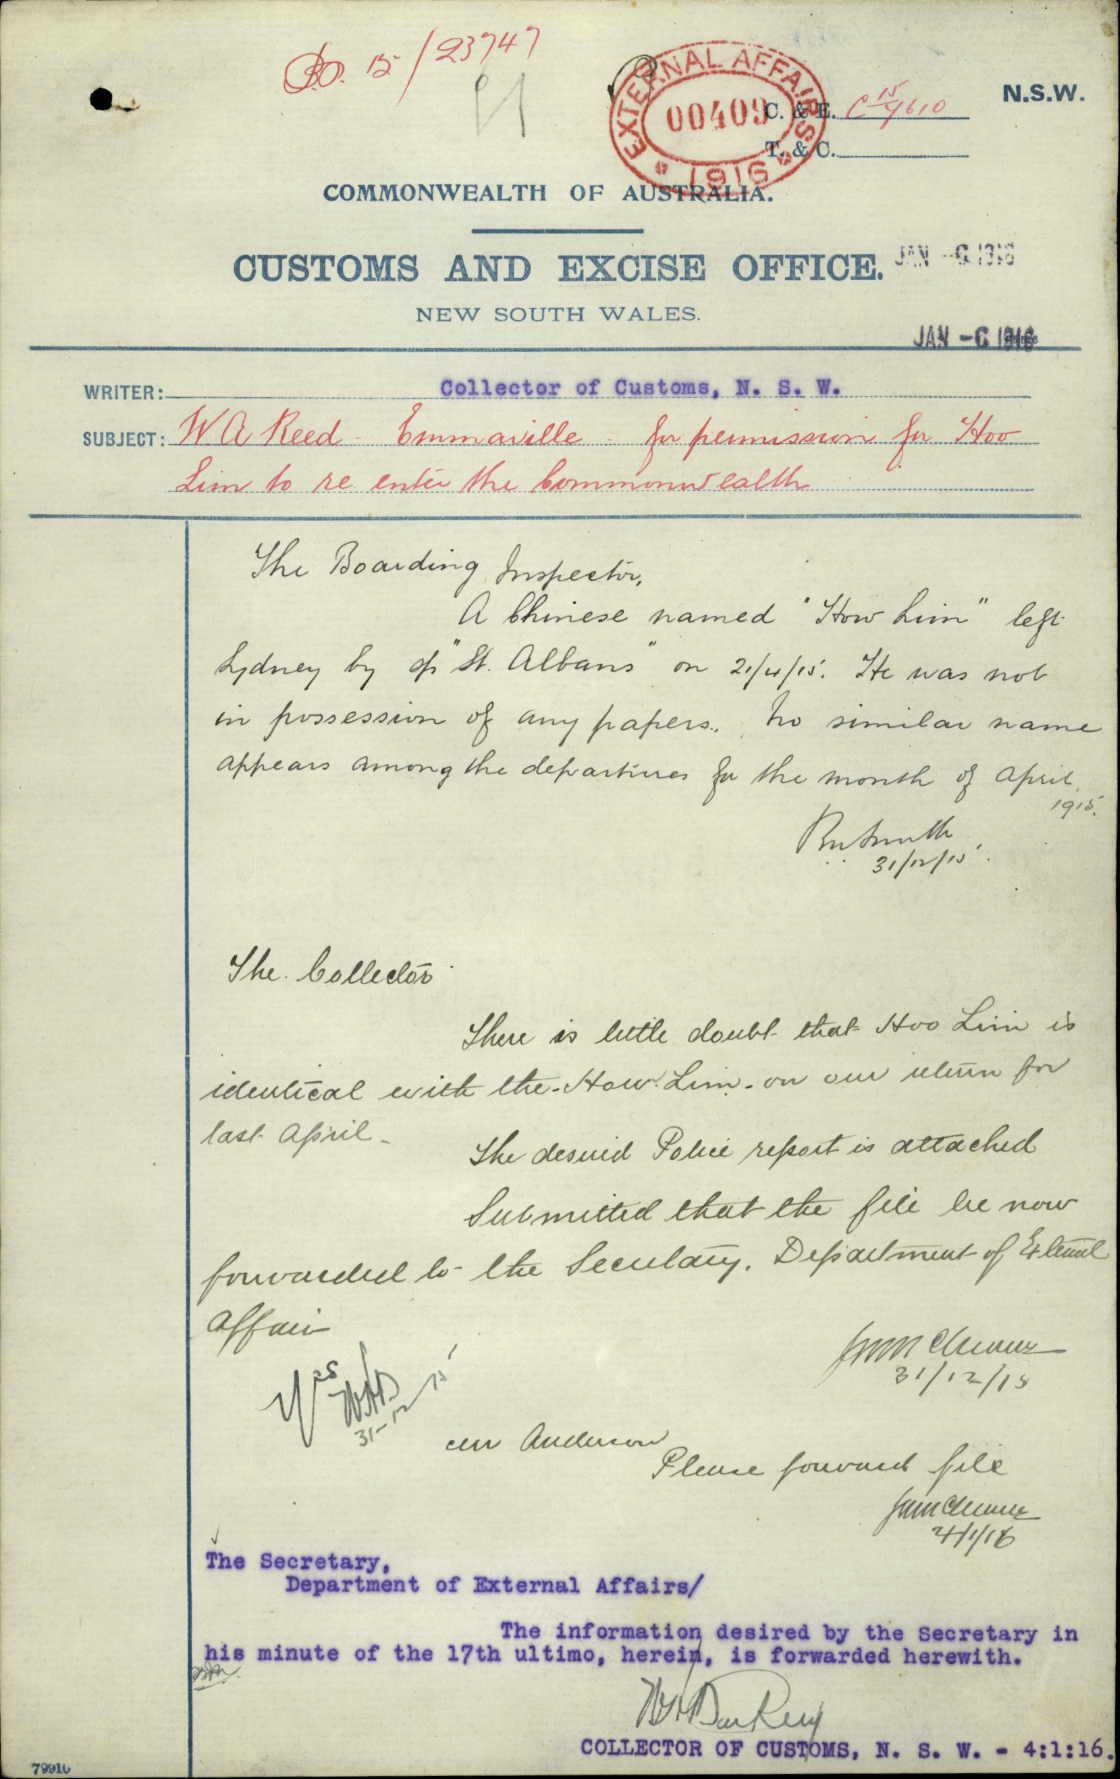 15/23747
EXTERNAL AFFAIRS
00409
1916
N.S.W.
C. & E. C 15/9610
T. & C.
COMMONWEALTH OF AUSTRALIA.
CUSTOMS AND EXCISE OFFICE.
JAN -6 1916
NEW SOUTH WALES.
JAN -6 1916
WRITER: Collector of Customs, N. S. W.
SUBJECT: W A Reed - Emmaville - for permission for Hoo
Lim to re enter the Commonwealth
The Boarding Inspector,
A Chinese named "How Lim" left
Sydney by ss "St. Albans" on 21/4/15. He was not
in possession of any papers. No similar name
appears among the departures for the month of April
1915.
31/12/15
The Collector
There is little doubt that Hoo Lim is
identical with the How Lim on our return for
last April.
The desired Police report is attached
Submitted that the file be now
forwarded to the Secretary, Department of External
Affairs
31/12/15
Yes
31-12-15
Mr Anderson
Please forward file
4/1/16
The Secretary,
Department of External Affairs/
The information desired by the Secretary in
his minute of the 17th ultimo, herein, is forwarded herewith.
COLLECTOR OF CUSTOMS, N. S. W. - 4:1:16.
79910